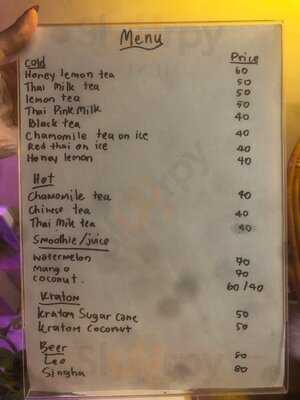 Menu
Cold Price
Honey lemon tea 60
Thai Milk tea 50
lemon tea 50
Thai Pink Milk 50
Black tea 40
Chamomile tea on ice 40
Red thai on ice 40
Honey lemon 40
Hot
Chamomile tea 40
Chinese tea 40
Thai Milk tea 40
Smoothie/juice
Watermelon 70
Mango 70
Coconut. 60/40
Kratom
Kratom Sugar Cane 50
Kratom Coconut 50
Beer
Leo 80
Singha 80